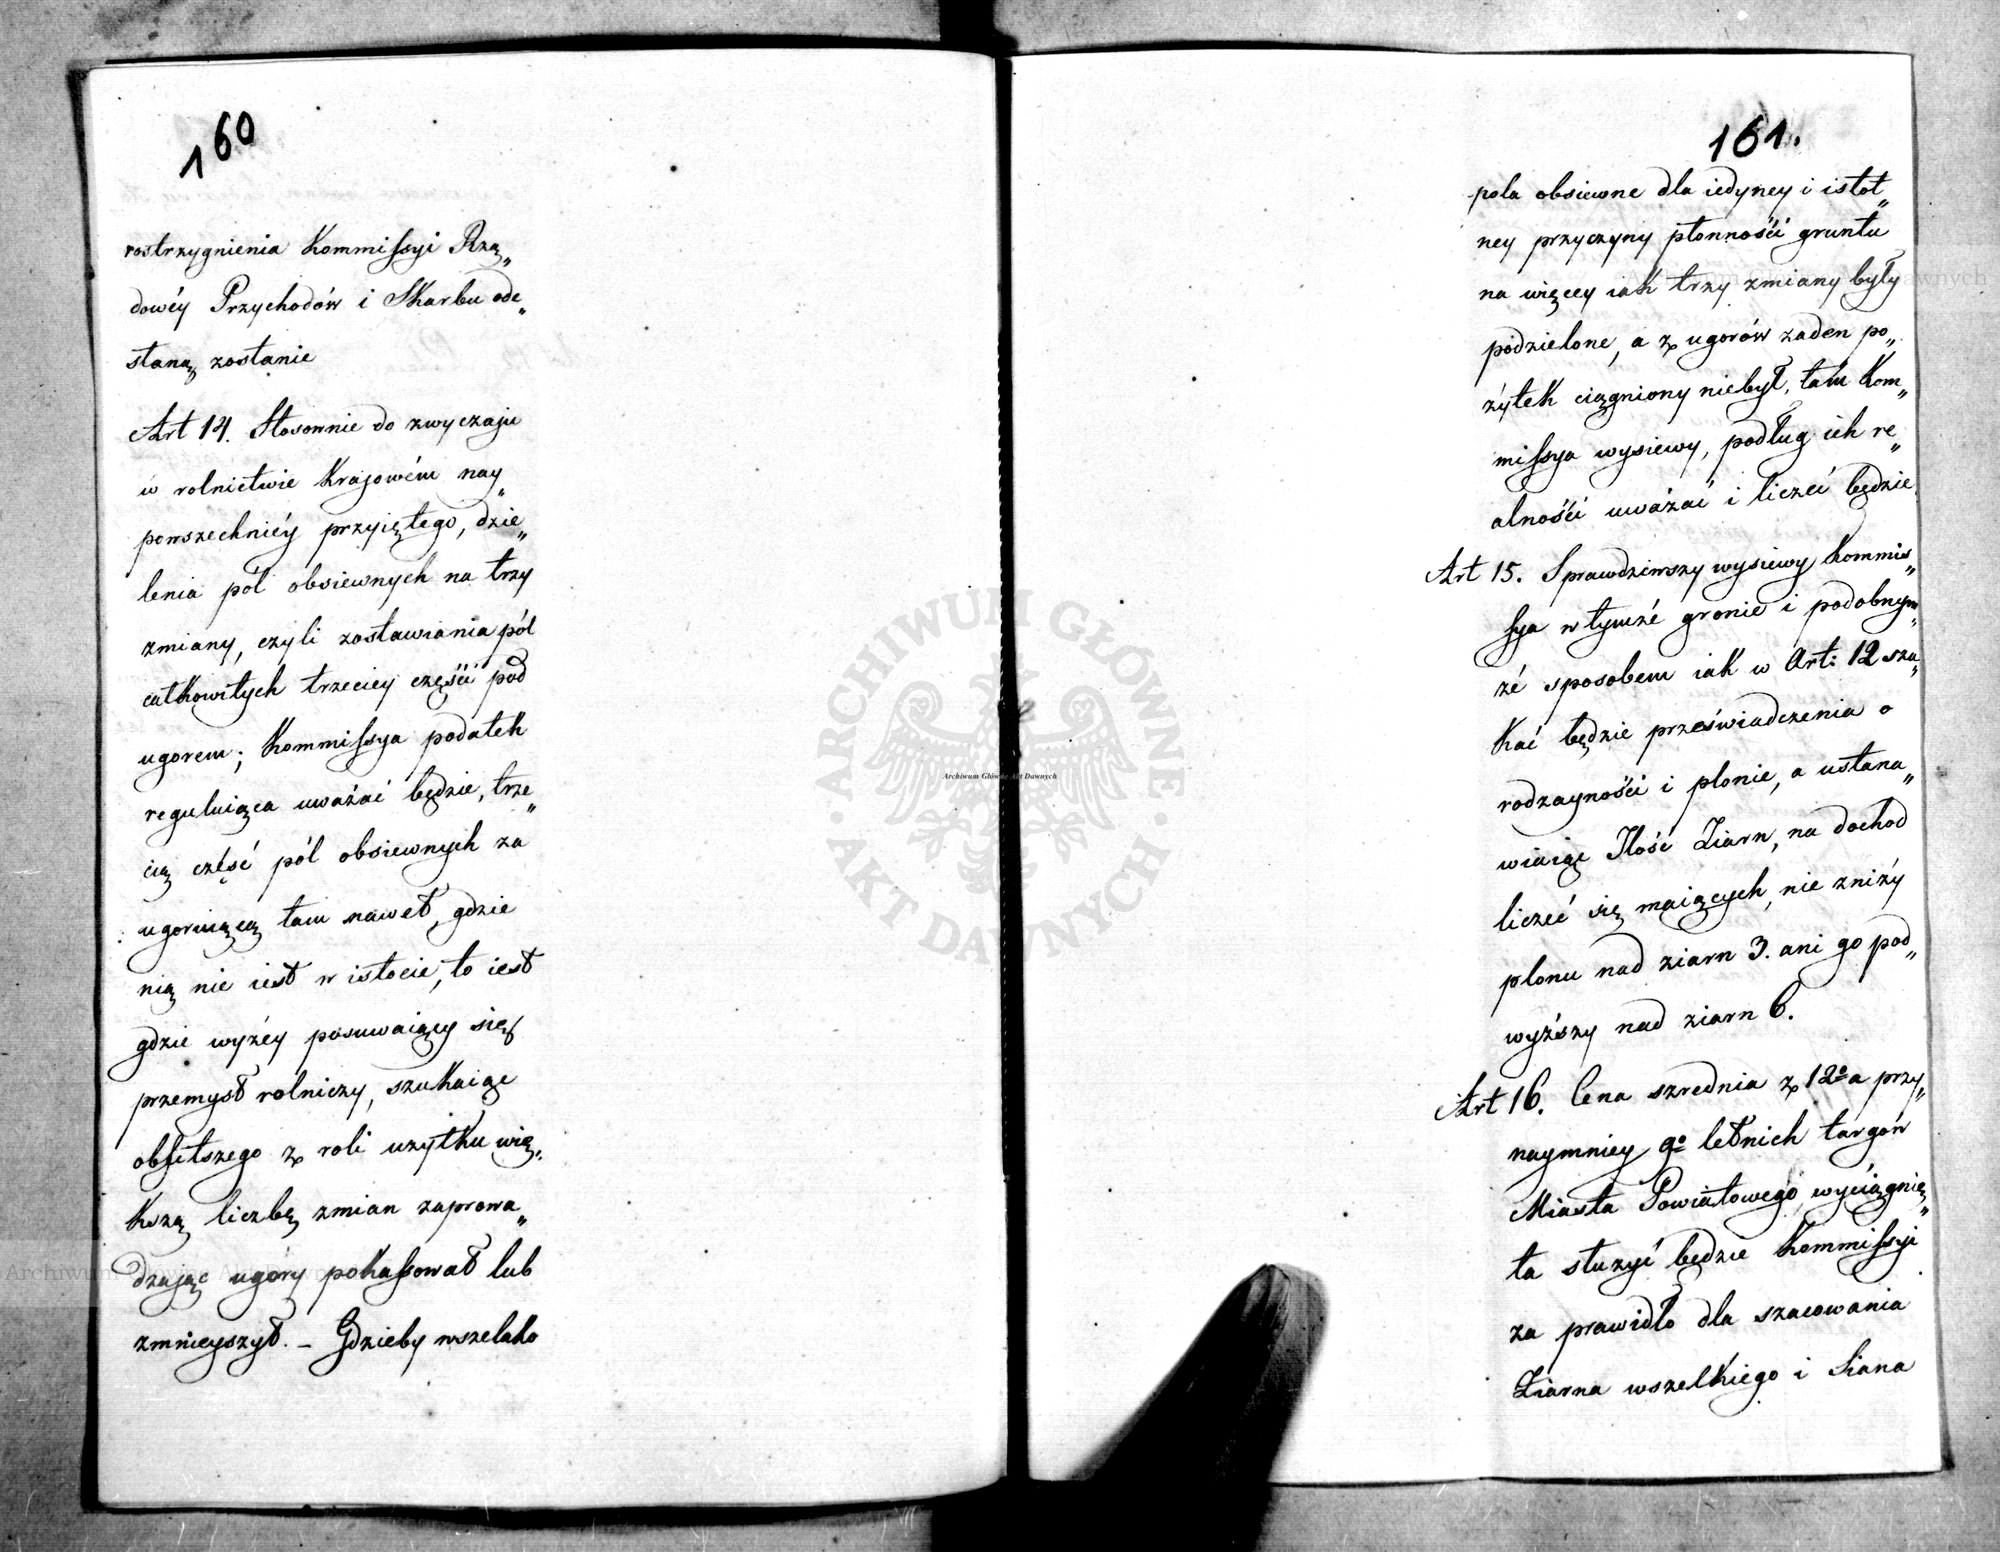 160
rostrzygnienia Kommissyi Rzą„
dowéy Przychodów i Skarbu ode„
słaną zostanie
Art 14. Stosownie do zwyczaju
w rolnictwie Krajowém nay„
powszechniéy przyiętego, dzie„
lenia pól obsiewnych na trzy
zmiany, czyli zostawiania pól
całkowitych trzeciey części pod
ugorem; Kommissya podatek
reguluiąca uważać będzie, trze„
cią część pól obsiewnych za
ugoruiącą tam nawet, gdzie
nią nie iest w istocie, to iest
gdzie wyżéy posuwaiący się
przemysł rolniczy, szukaiąc
obfitszego z roli użytku wię„
kszą liczbę zmian zaprowa„
dzając ugory pokassował lub
zmnieyszył. – Gdzieby wszelako
161.
pola obsiewne dla iedyney i istot„
ney przyczyny płonności gruntu
na więcey iak trzy zmiany były
podzielone, a z ugorów żaden po„
żytek ciągniony niebył, tam Kom„
missya wysiewy, podług ich re„
alności uważać i liczeć będzie
Art 15. Sprawdziwszy wysiewy Kommis„
sya w tymże gronie i podobnym„
że sposobem iak w Art: 12 szu„
kać będzie przeświadczenia o
rodzayności i plonie, a ustana„
wiaiąc Ilość Ziarn, na dochod
liczeć się maiących, nie zniży
plonu nad ziarn 3. ani go pod„
wyższy nad ziarn 6.
Art 16. Cena szrednia z 12º a przy„
naymniey 9º letnich targów
Miasta Powiatowego, wyciągnię„
ta służyć będzie Kommissyi
za prawidło dla szacowania
Ziarna wszelkiego i Siana
ARCHIWUM GŁÓWNE AKT DAWNYCH
Archiwum Główne Akt Dawnych